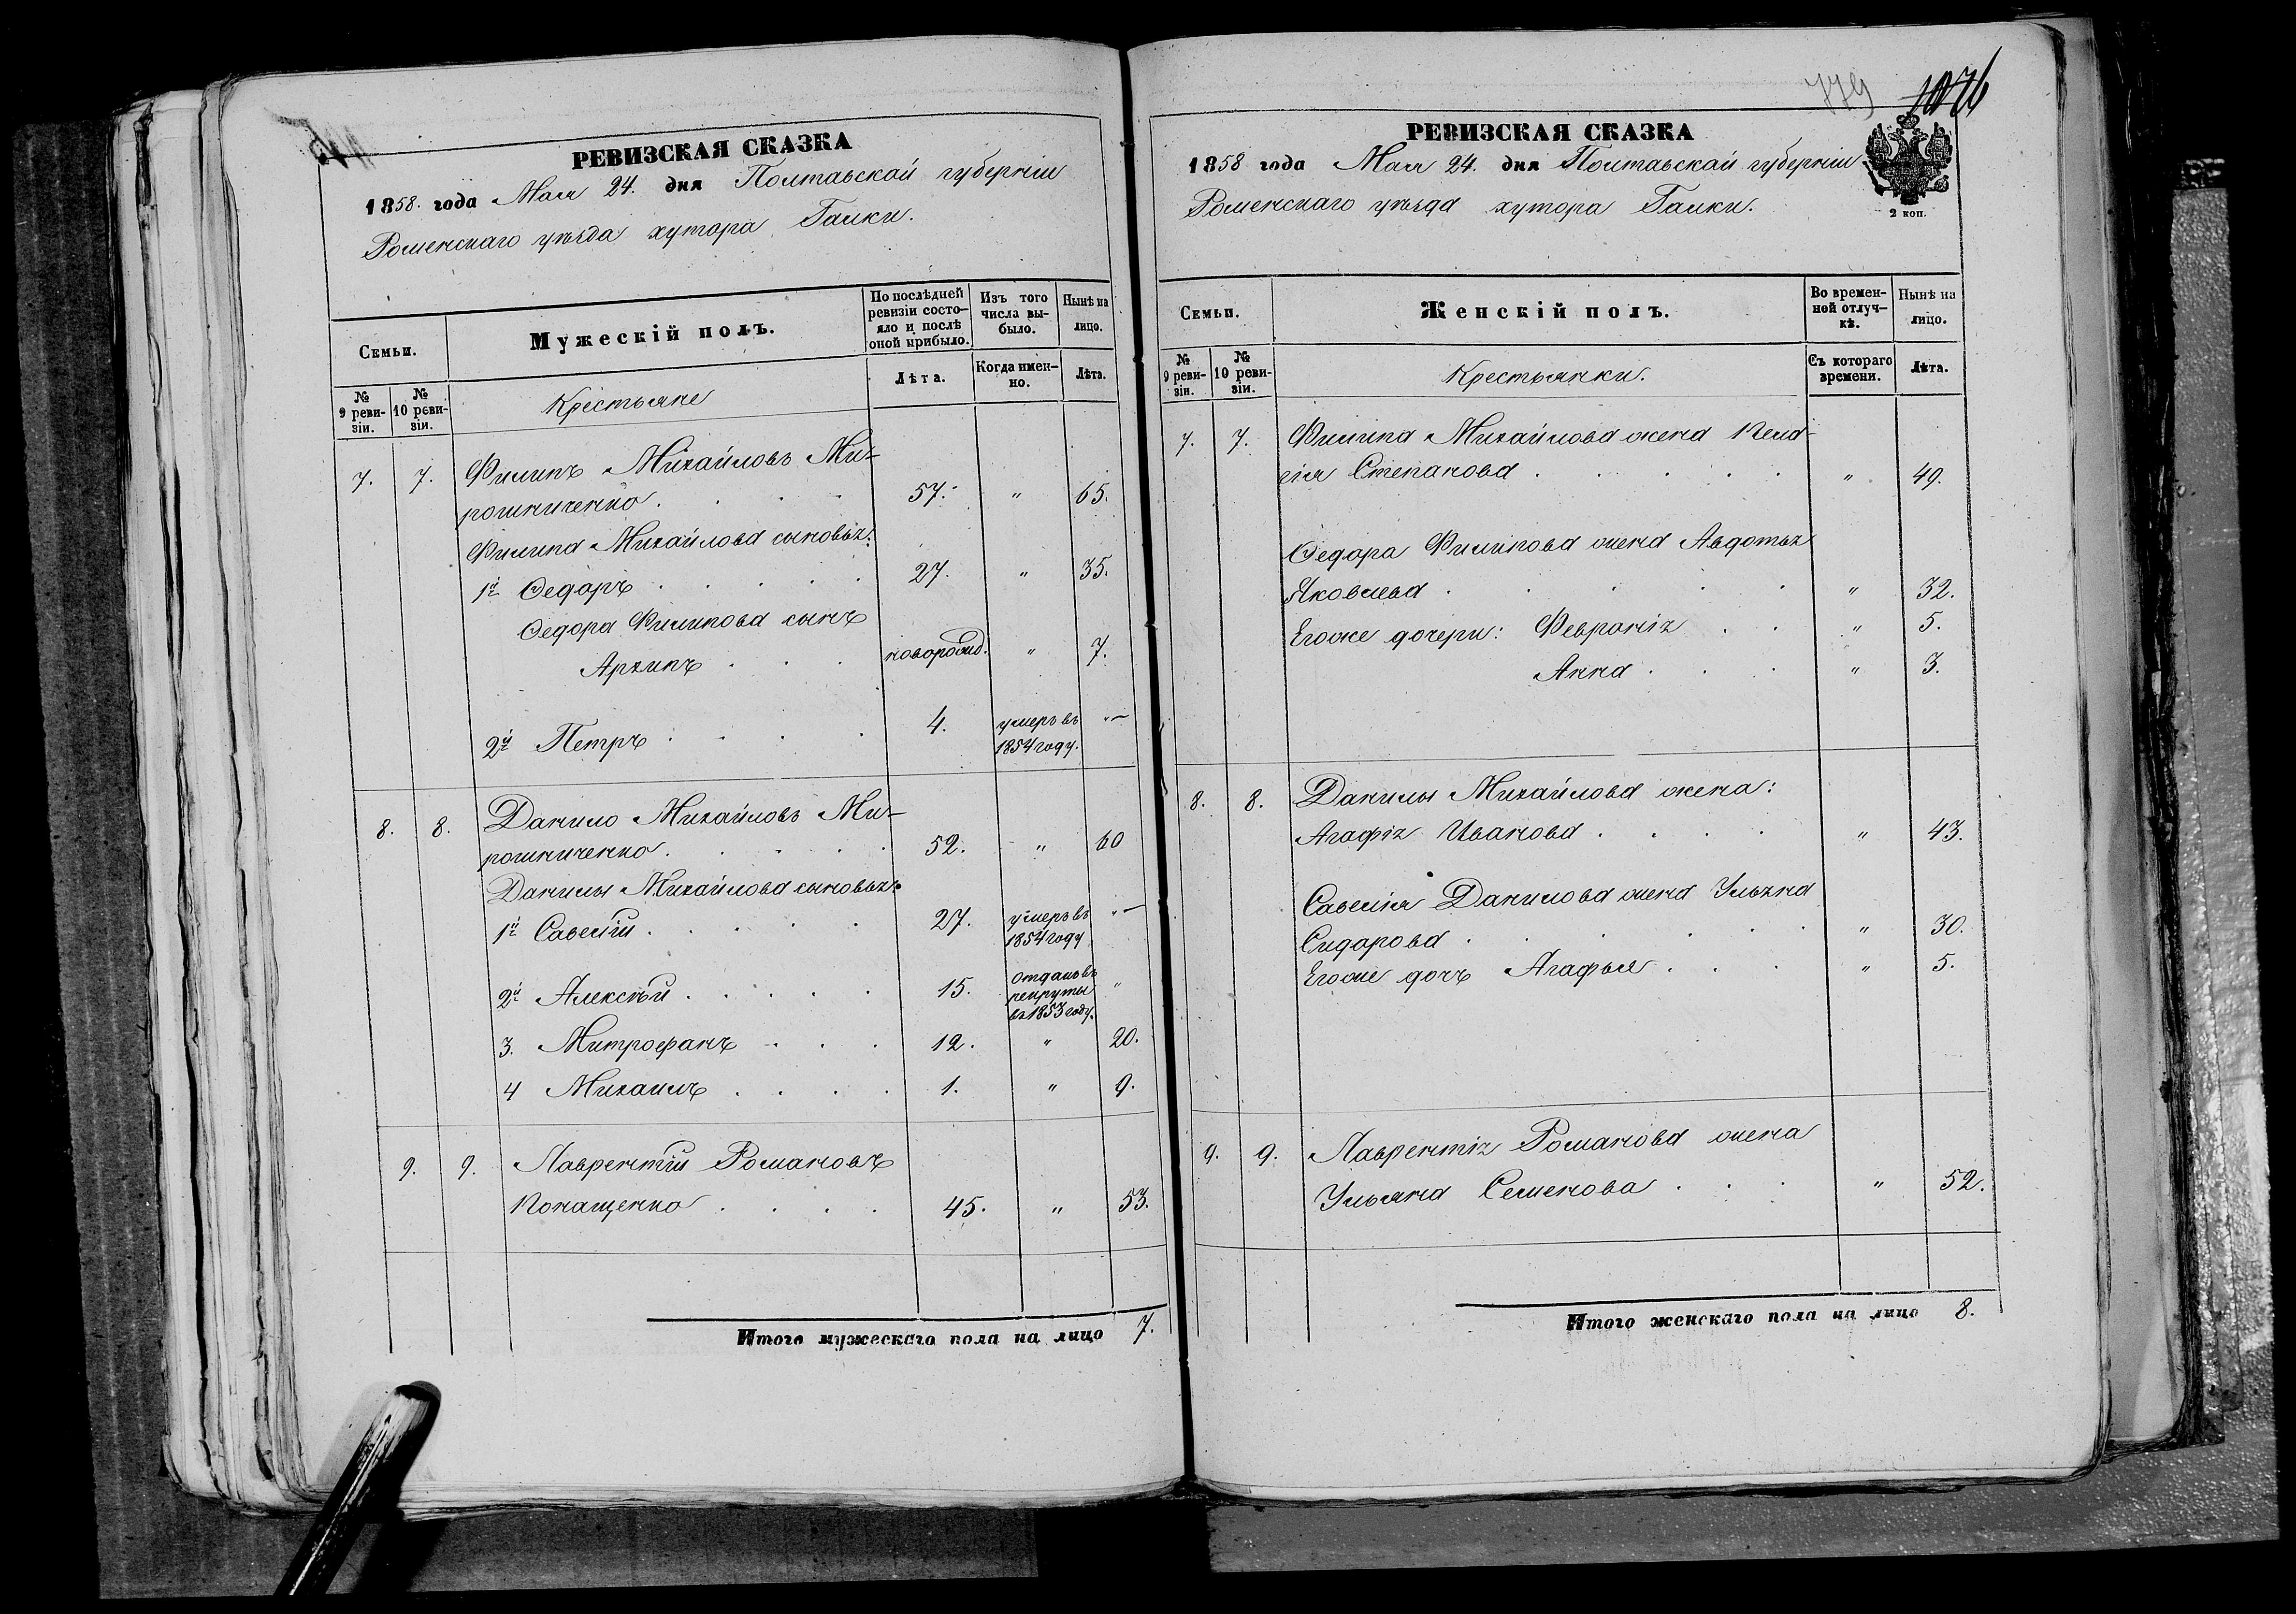 РЕВИЗСКАЯ СКАЗКА
1858. года Мая 24. дня Полтавской губерніи
Роменскаго уѣзда хутора Галки.
Семьи.
Мужескій полъ.
По послѣдней
ревизіи состо-
яло и послѣ
оной прибыло.
Изъ того
числа вы-
было.
Нынѣ на
лицо.
№
9 реви-
зіи.
№
10 реви-
зіи.
Крестьяне
Лѣта.
Когда имен-
но.
Лѣта.
7. 7. Филипъ Михайловъ Ми-
рошниченко . . . . 57. " 65.
Филипа Михайлова сыновья:
1й Федоръ . . . . . 27. " 35.
Федора Филипова сынъ
Архипъ . . . новорожд. " 7.
2й Петръ . . . . 4. умеръ въ "—
1854 году.
8. 8. Данило Михайловъ Ми-
рошниченко . . . . . 52. " 60
Данилы Михайлова сыновья:
1й Савелій . . . . . 27. умеръ въ "—
1854 году
2й Алексѣй . . . . . 15. отданъ въ "
рекруты
въ 1853 году.
3. Митрофанъ . . . 12. " 20.
4 Михаилъ . . . . 1. " 9.
9. 9. Лаврентій Романовъ
Конащенко . . . . 45. " 53.
Итого мужескаго пола на лицо 7.
779 1076
РЕВИЗСКАЯ СКАЗКА
1858 года Мая 24. дня Полтавской губерніи
2 коп.
Роменскаго уѣзда хутора Галки.
Семьи.
Женскій полъ.
Во времен-
ной отлуч-
кѣ.
Нынѣ на
лицо.
№
9 реви-
зіи.
№
10 реви-
зіи.
Крестьянки.
Съ котораго
времени.
Лѣта.
7. 7. Филипа Михайлова жена Пела-
гія Степанова . . . . . " 49.
Федора Филипова жена Авдотья
Яковлева . . . . . " 32.
Егоже дочери: Февронія . . " 5.
Анна . . . " 3.
8. 8. Данилы Михайлова жена:
Агафія Иванова . . . . " 43.
Савелія Данилова жена Ульяна
Сидорова . . . . . . " 30.
Егоже дочь Агафья . . . " 5.
9. 9. Лаврентія Романова жена
Ульяна Семенова . . . " 52.
Итого женскаго пола на лицо 8.